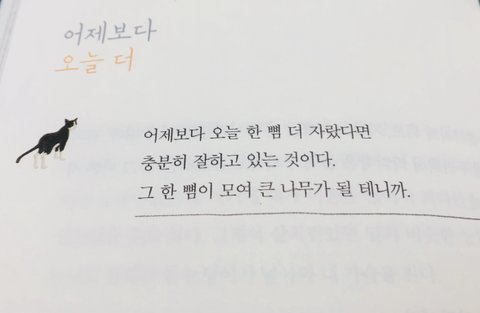 어제보다
오늘 더
어제보다 오늘 한 뼘 더 자랐다면
충분히 잘하고 있는 것이다.
그 한 뼘이 모여 큰 나무가 될 테니까.